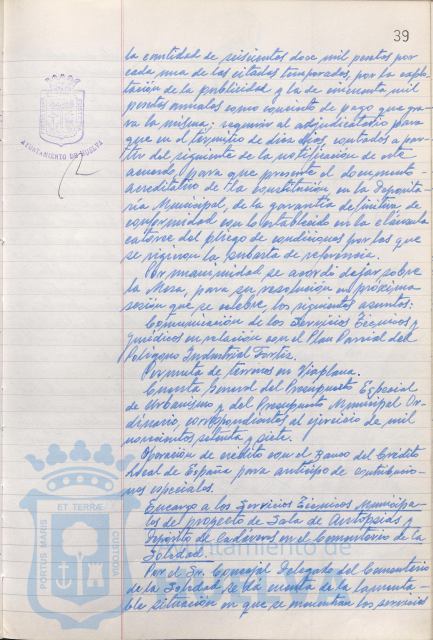 39
la cantidad de seiscientas doce mil pesetas por
cada una de las citadas temporadas, por la explo-
tación de la publicidad y la de cincuenta mil
pesetas anuales como concierto de pago que gra-
va la misma; requerir al adjudicatario para
que en el término de diez días, contados a par-
tir del siguiente de la notificación de este
acuerdo, para que presente el documento
acreditativo de la constitución en la Deposita-
ría Municipal, de la garantía definitiva de
conformidad con lo establecido en la cláusula
catorce del pliego de condiciones por las que
se rigieron la subasta de referencia.
Por unanimidad, se acordó dejar sobre
la Mesa, para su resolución en próxima
sesión que se celebre los siguientes asuntos:
Comunicación de los Servicios Técnicos y
Jurídicos en relación con el Plan Parcial del
Polígono Industrial Fortiz.
Permuta de terrenos en Viaplana.
Cuenta General del Presupuesto Especial
de Urbanismo y del Presupuesto Municipal Or-
dinario, correspondientes al ejercicio de mil
novecientos setenta y siete.
Operación de crédito con el Banco del Crédito
Local de España para anticipo de contribucio-
nes especiales.
Encargo a los Servicios Técnicos Municipa-
les del proyecto de Sala de Autopsias y
Depósito de Cadáveres en el Cementerio de la
Soledad.
Por el Sr. Concejal Delegado del Cementerio
de la Soledad se da cuenta de la lamenta-
ble situación en que se encuentran los servicios
AYUNTAMIENTO DE HUELVA
Ayuntamiento de
PORTUS MARIS ET TERRAE CUSTODIA